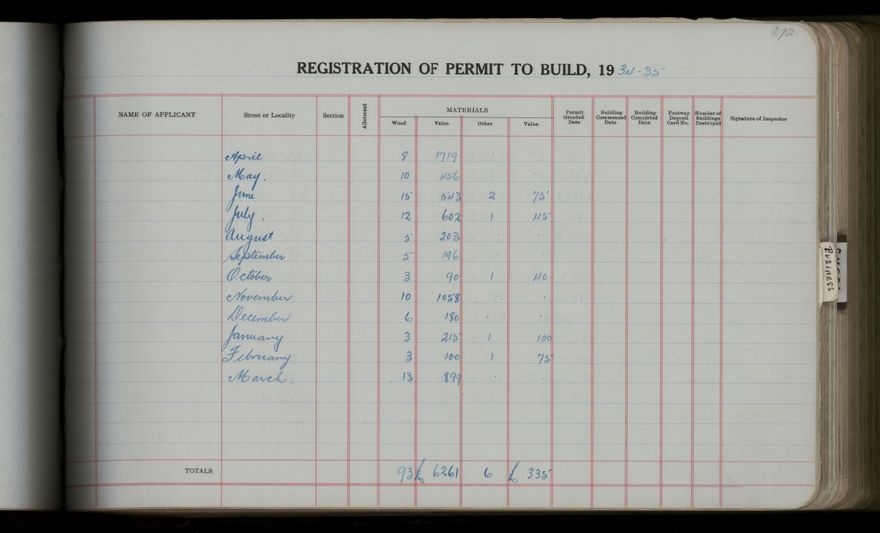 REGISTRATION OF PERMIT TO BUILD, 1934-35
NAME OF APPLICANT Street or Locality Section Allotment MATERIALS Wood Value Other Value Permit Granted Date Building Commenced Date Building Completed Date Footway Deposit Card No. Number of Buildings Destroyed Signature of Inspector
April 8 1719
May. 10 456
June 15 543 2 75
July. 12 602 1 45
August 5 203
September 5 196
October 3 90 1 40
November 10 1058
December 6 180
January 3 215 1 100
February 3 100 1 75
March. 13 899
TOTALS 93 £ 6261 6 £ 335
BUSINESS